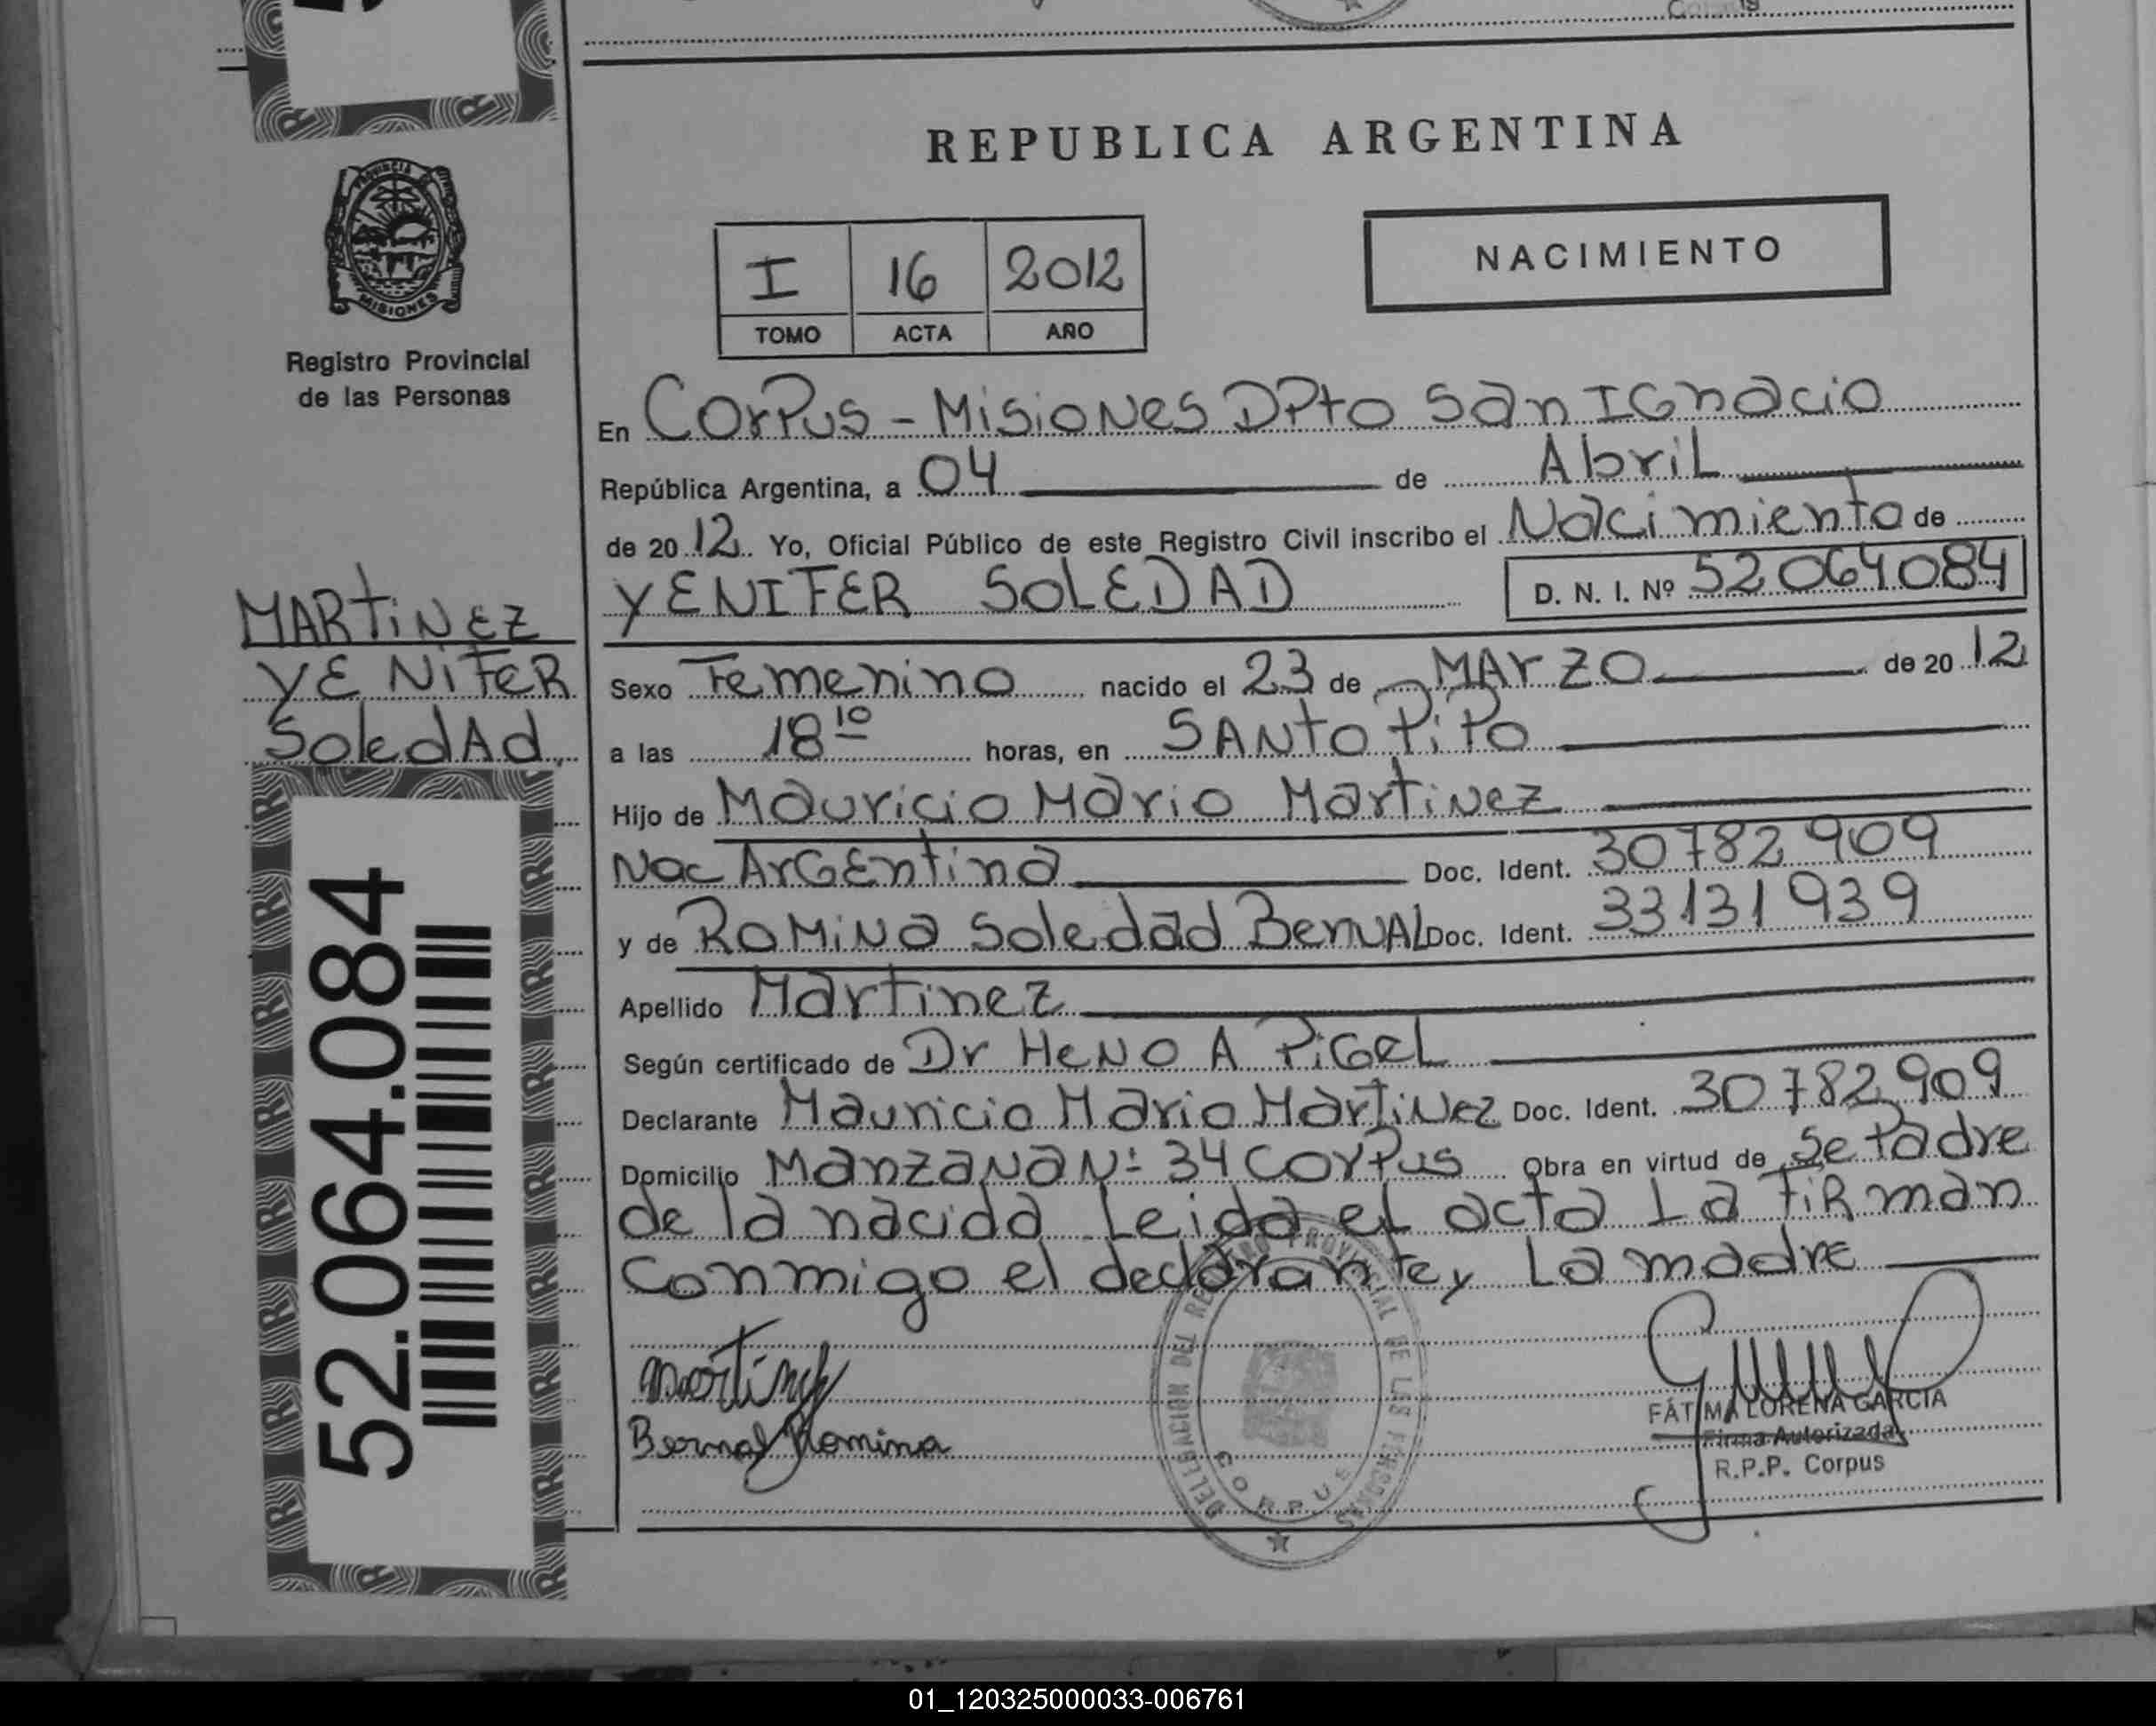 REPUBLICA ARGENTINA
PROVINCIA DE
MISIONES
Registro Provincial
de las Personas
I 16 2012
TOMO ACTA AÑO
NACIMIENTO
En Corpus - Misiones DPto San IGnacio
República Argentina, a 04 de Abril
de 2012 Yo, Oficial Público de este Registro Civil inscribo el Nacimiento de
YENIFER SOLEDAD D. N. I. Nº 52064084
MARTiNEZ
YENiFER
SoledAd
Sexo Femenino nacido el 23 de MARZO de 2012
a las 18 10 horas, en SANto PiPo
Hijo de Mauricio Mario Martinez
Nac ArGEntina Doc. Ident. 30782909
y de RoMiNa Soledad BernAL Doc. Ident. 33131939
Apellido Martinez
Según certificado de Dr HeNO A PiGeL
Declarante Mauricio Mario MartiNez Doc. Ident. 30782909
Domicilio ManzaNa Nº 34 Corpus Obra en virtud de Se Padre
de la nacida Leida el acta La FiRman
conmigo el declarante y La madre
Martinez
Bernal Romina
DELEGACION DEL REGISTRO PROVINCIAL DE LAS PERSONAS
CORPUS
FÁTIMA LORENA GARCIA
Firma Autorizada
R.P.P. Corpus
52.064.084
01_120325000033-006761